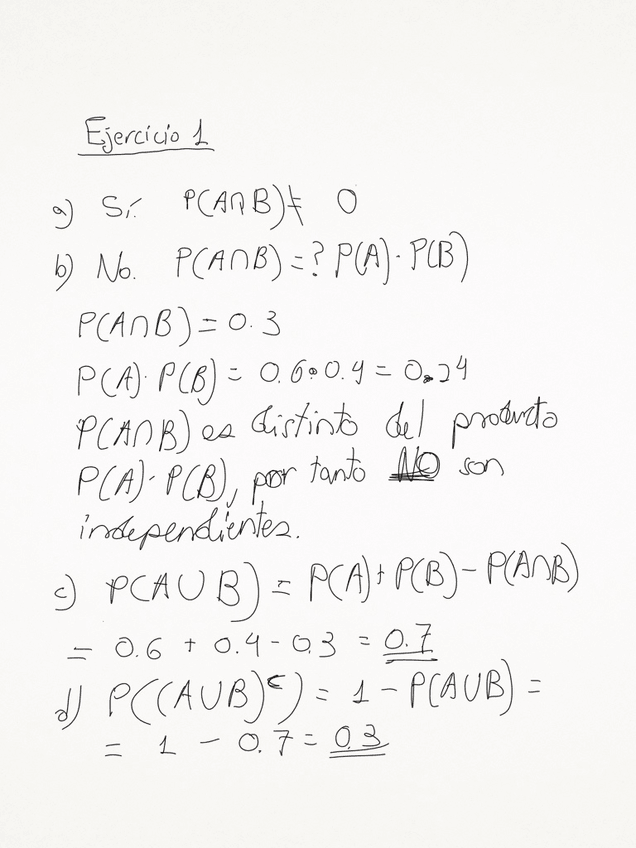 Ejercicio 1
a) Sí. P(A∩B) ≠ 0
b) No. P(A∩B) =? P(A) · P(B)
P(A∩B) = 0.3
P(A) · P(B) = 0.6 · 0.4 = 0.24
P(A∩B) es distinto del producto
P(A) · P(B), por tanto NO son
independientes.
c) P(A∪B) = P(A) + P(B) - P(A∩B)
= 0.6 + 0.4 - 0.3 = 0.7
d) P((A∪B)ᶜ) = 1 - P(A∪B) =
= 1 - 0.7 = 0.3